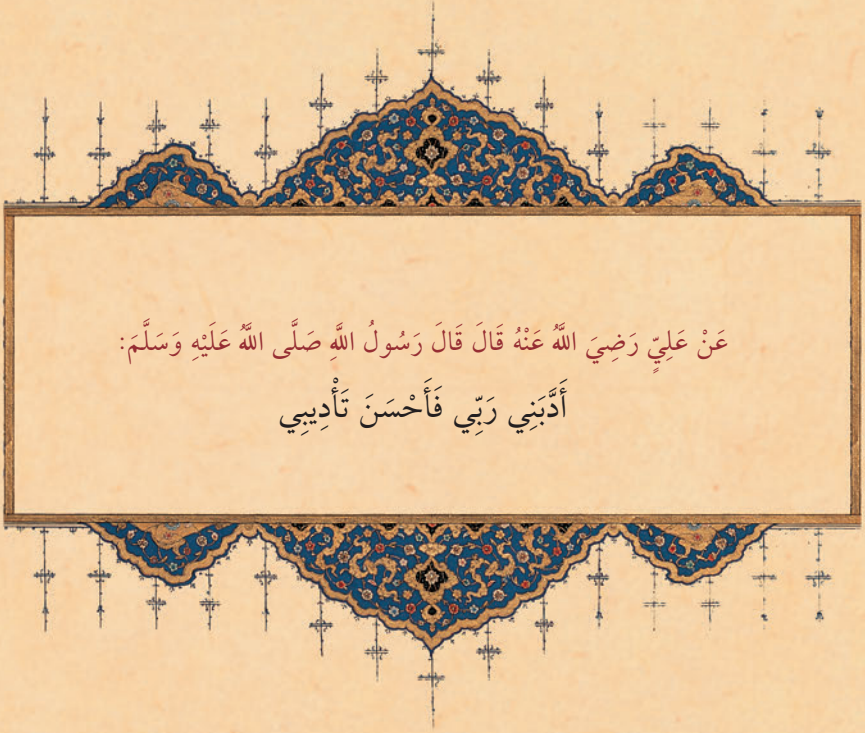 عَنْ عَلِيٍّ رَضِيَ اللَّهُ عَنْهُ قَالَ قَالَ رَسُولُ اللَّهِ صَلَّى اللَّهُ عَلَيْهِ وَسَلَّمَ:
أَدَّبَنِي رَبِّي فَأَحْسَنَ تَأْدِيبِي